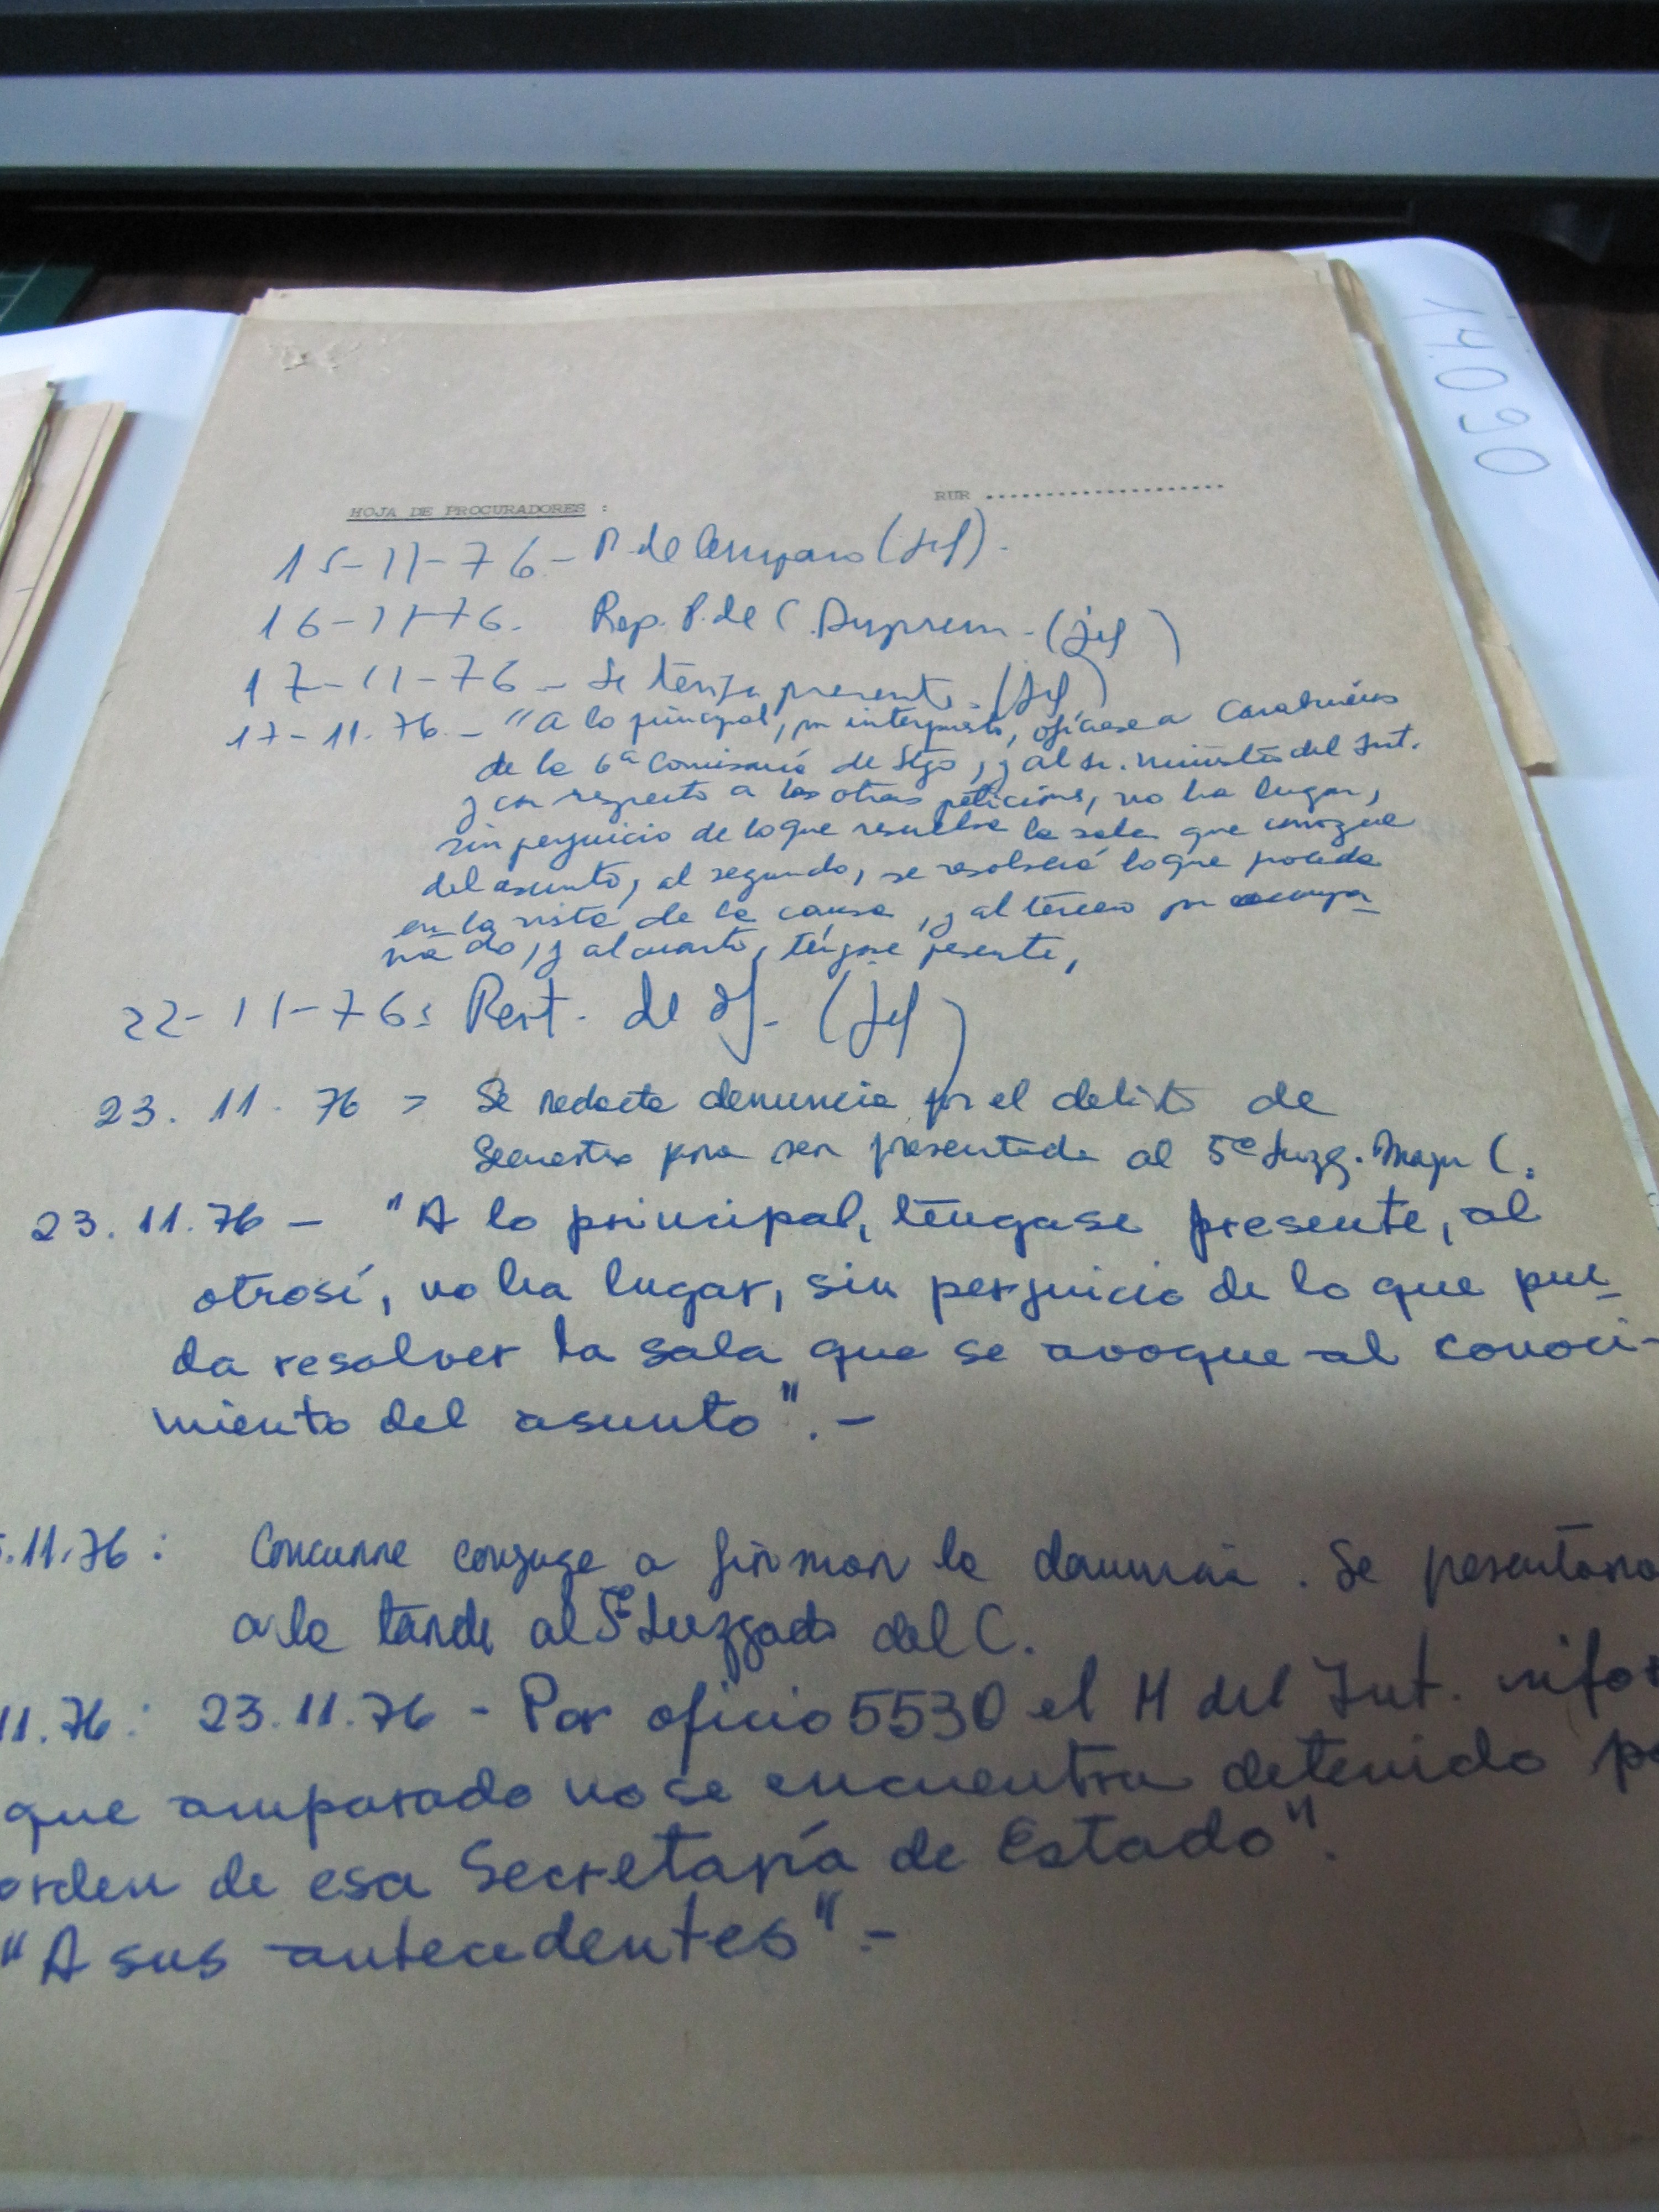 14.090
RUR ......................
HOJA DE PROCURADORES :
15-11-76- R. de Amparo (Jef).-
16-11-76. Rep. P. de C. Suprem. - (Jef)
17-11-76 - Se tenga presente. (Jef)
17-11.76.- "A lo principal, por interpuesto, ofíciese a Carabineros
de la 6ª Comisaría de Stgo, y al Sr. Ministro del Int.
y con respecto a las otras peticiones, no ha lugar,
sin perjuicio de lo que resuelva la sala que conozca
del asunto, al segundo, se resolverá lo que proceda
en la vista de la causa, y al tercero por acompa_
ñado, y al cuarto, téngase presente,
22-11-76: Rest. de of. (Jef)
23. 11. 76 > Se redacta denuncia por el delito de
Secuestro para ser presentada al 5º Juzg. Mayor C.
23.11.76 - "A lo principal, téngase presente, al
otrosí, no ha lugar, sin perjuicio de lo que pue_
da resolver la sala que se avoque al conoci-
miento del asunto".-
.11.76: Concurre conyuge a firmar la denuncia. Se presentara
a la tarde al 5º Juzgado del C.
11.76: 23.11.76 - Por oficio 5530 el M del Int. infor
que amparado no se encuentra detenido po
orden de esa Secretaría de Estado".
"A sus antecedentes".-